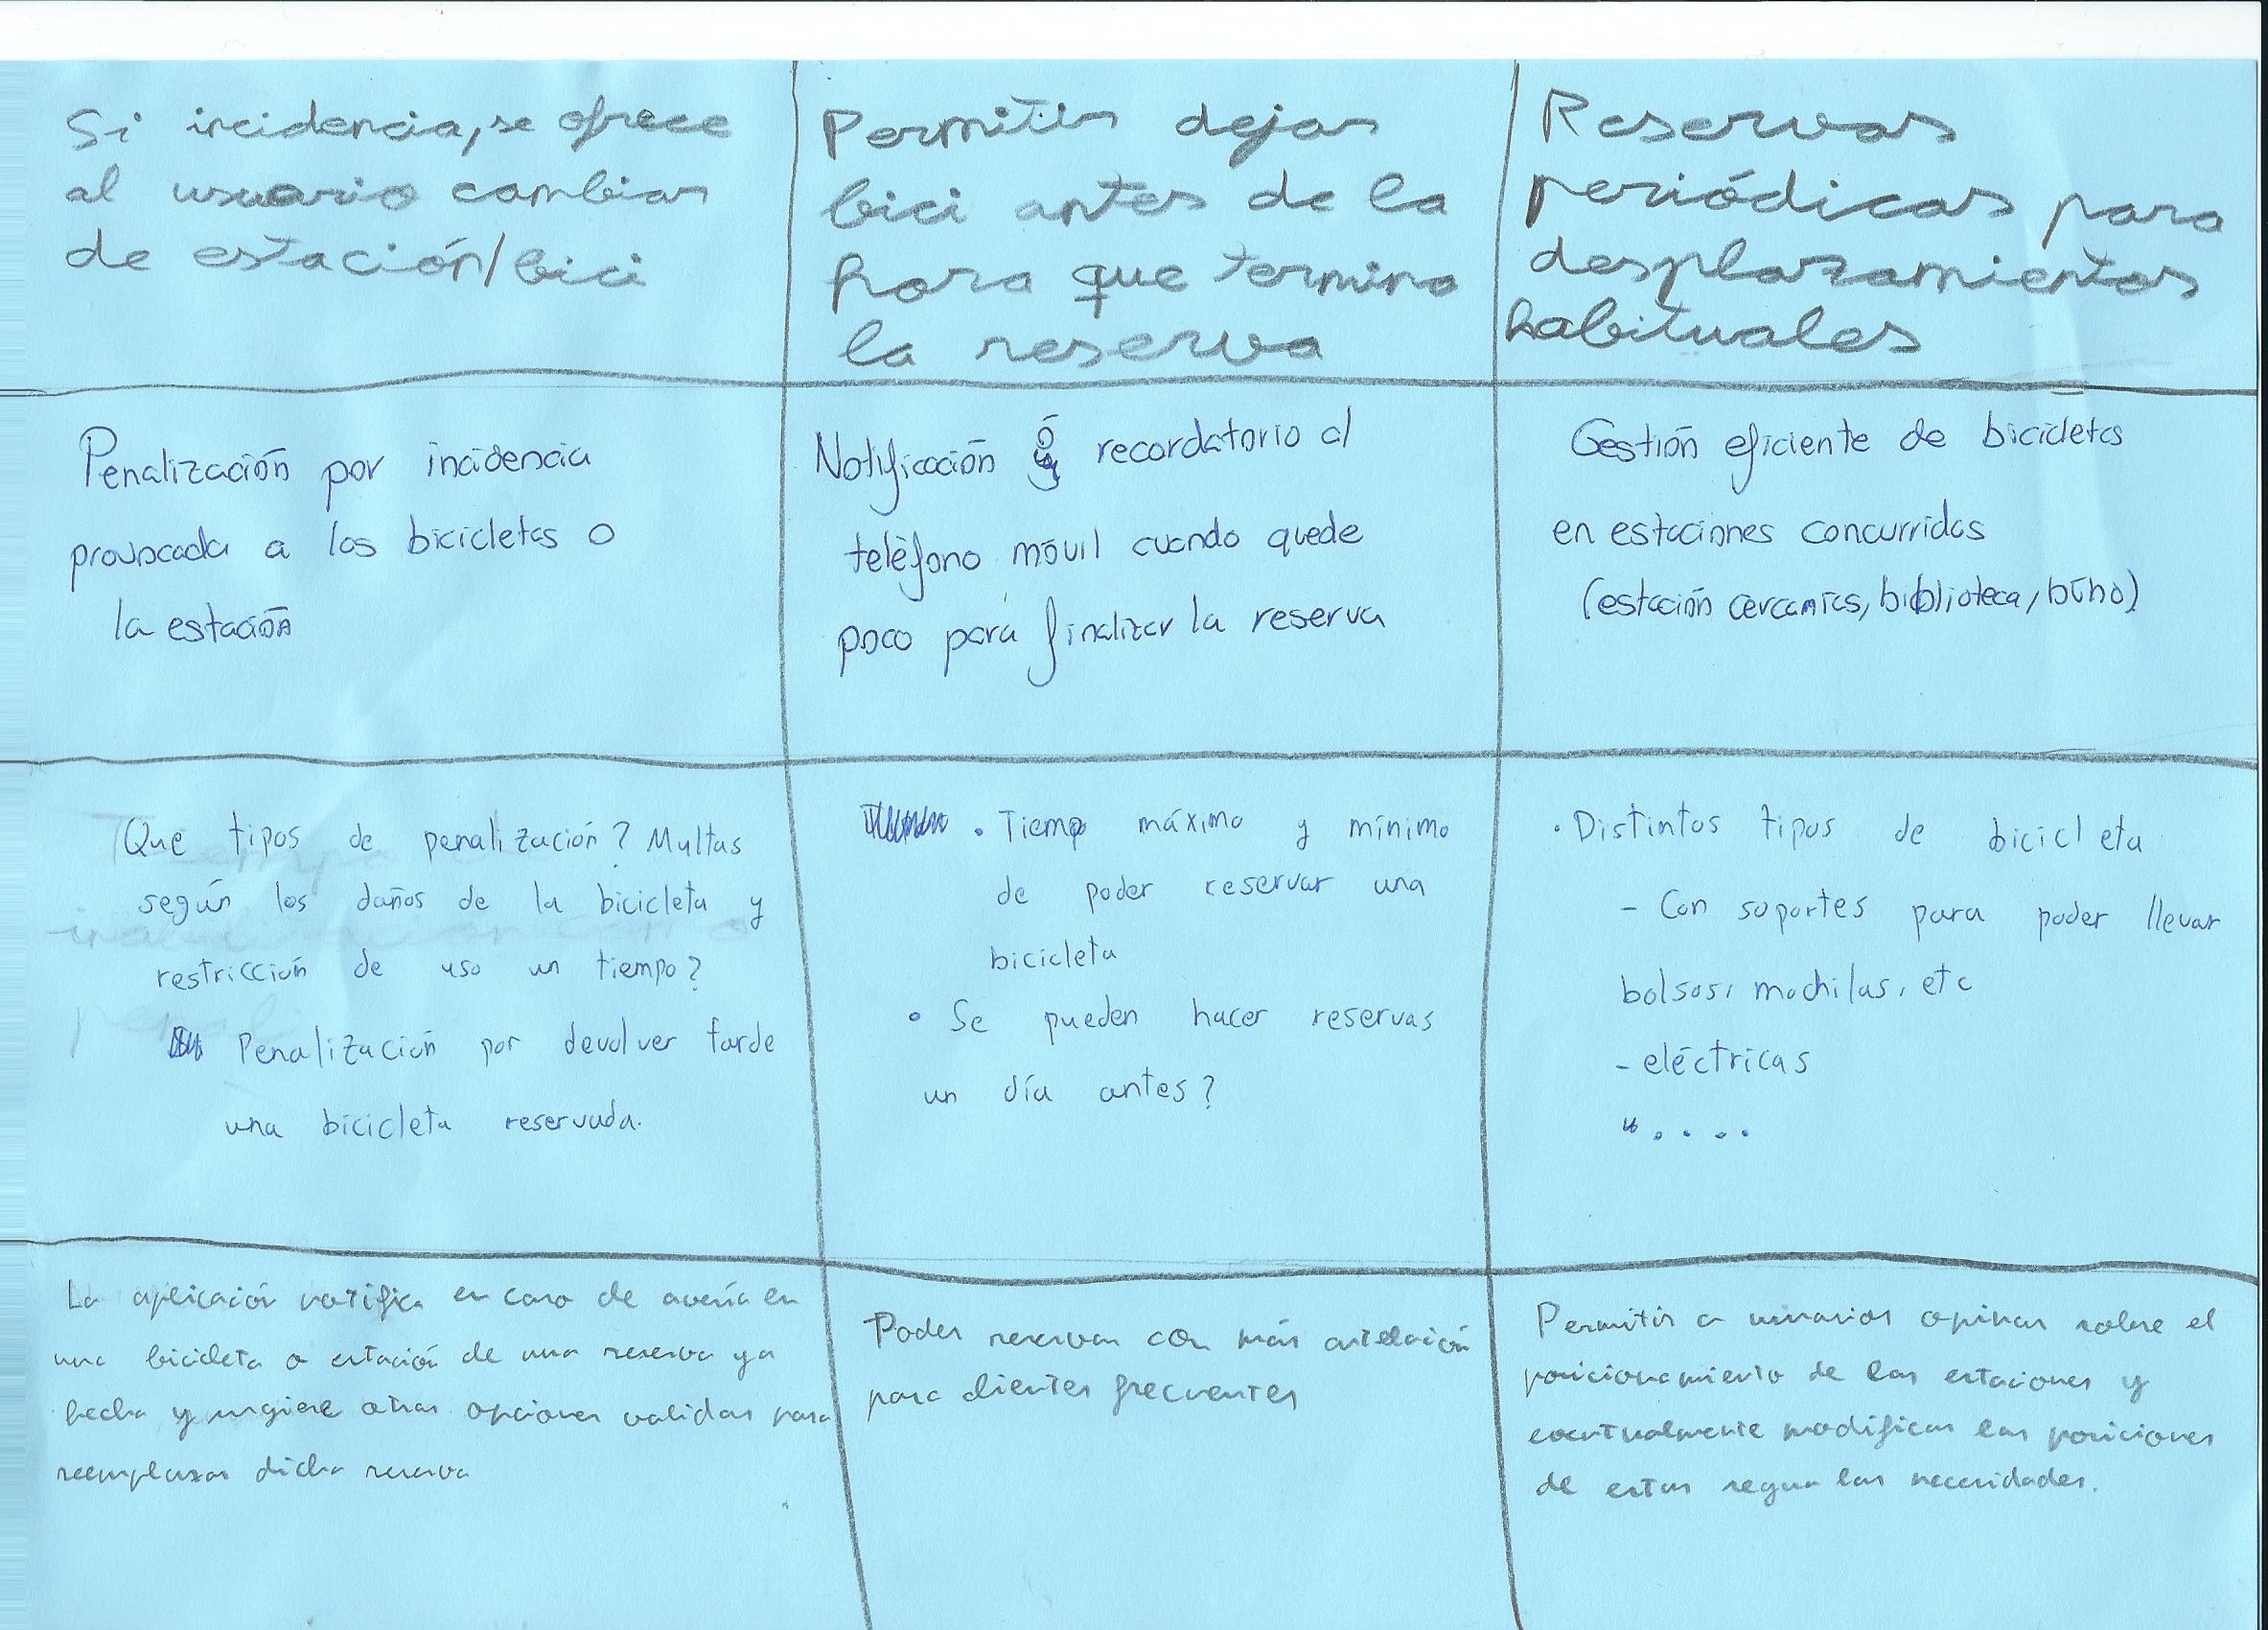 Si incidencia, se ofrece
al usuario cambiar
de estación/bici
Permitir dejar
bici antes de la
hora que termina
la reserva
Reservas
periódicas para
desplazamientos
habituales
Penalización por incidencia
provocada a las bicicletas o
la estación
Notificación ó recordatorio al
teléfono móvil cuando quede
poco para finalizar la reserva
Gestión eficiente de bicicletas
en estaciones concurridas
(estación cercanías, biblioteca, búho)
Que tipos de penalización? Multas
según los daños de la bicicleta y
restricción de uso un tiempo?
Penalización por devolver tarde
una bicicleta reservada.
• Tiempo máximo y mínimo
de poder reservar una
bicicleta
• Se pueden hacer reservas
un día antes?
• Distintos tipos de bicicleta
- Con soportes para poder llevar
bolsos, mochilas, etc
- eléctricas
" . . . .
La aplicación notifica en caso de avería en
una bicicleta o estación de una reserva ya
hecha y sugiere otras opciones validas para
reemplazar dicha reserva
Poder reservar con más antelación
para clientes frecuentes
Permitir a usuarios opinar sobre el
posicionamiento de las estaciones y
eventualmente modificar las posiciones
de estas segun las necesidades.